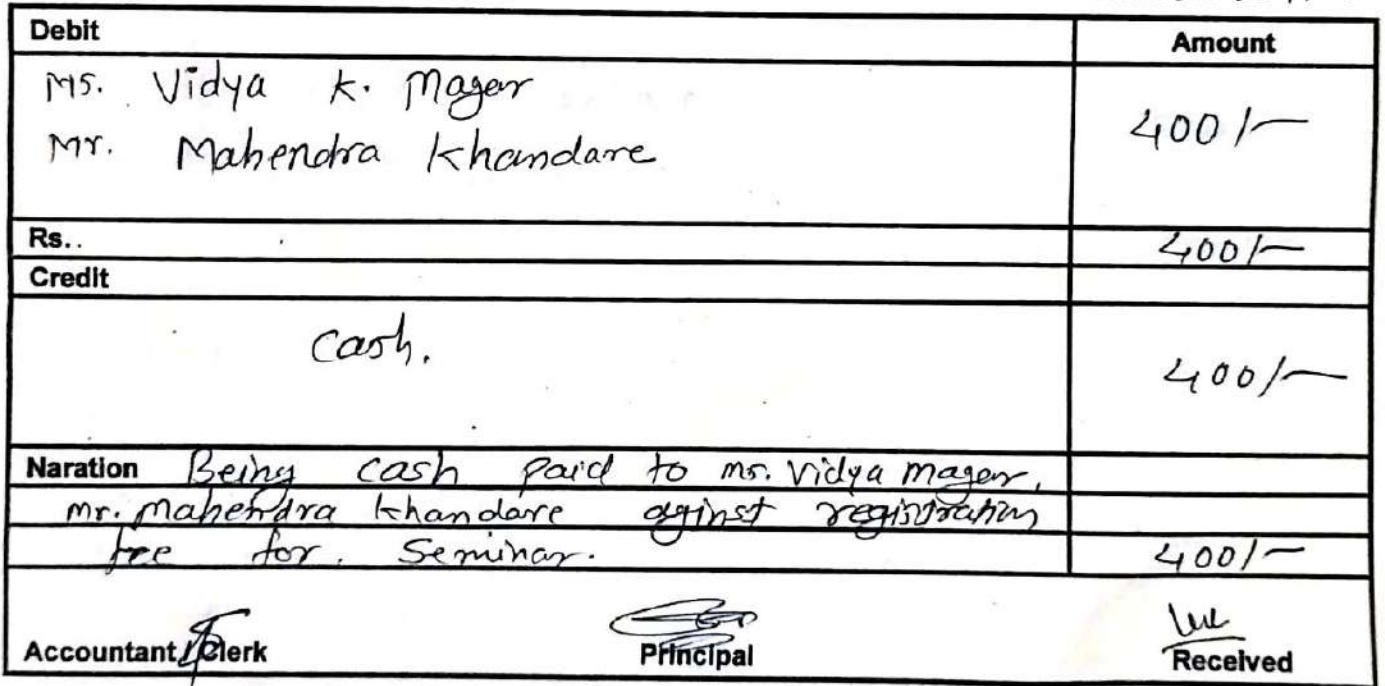 Debit Amount
Ms. Vidya K. Magar
400/-
Mr. Mahendra Khandare
Rs.. 400/-
Credit
Cash.
400/-
Naration Being cash paid to ms. Vidya magar,
mr. Mahendra Khandare aginst registration
fee for. Seminar. 400/-
Accountant / Clerk Principal Received